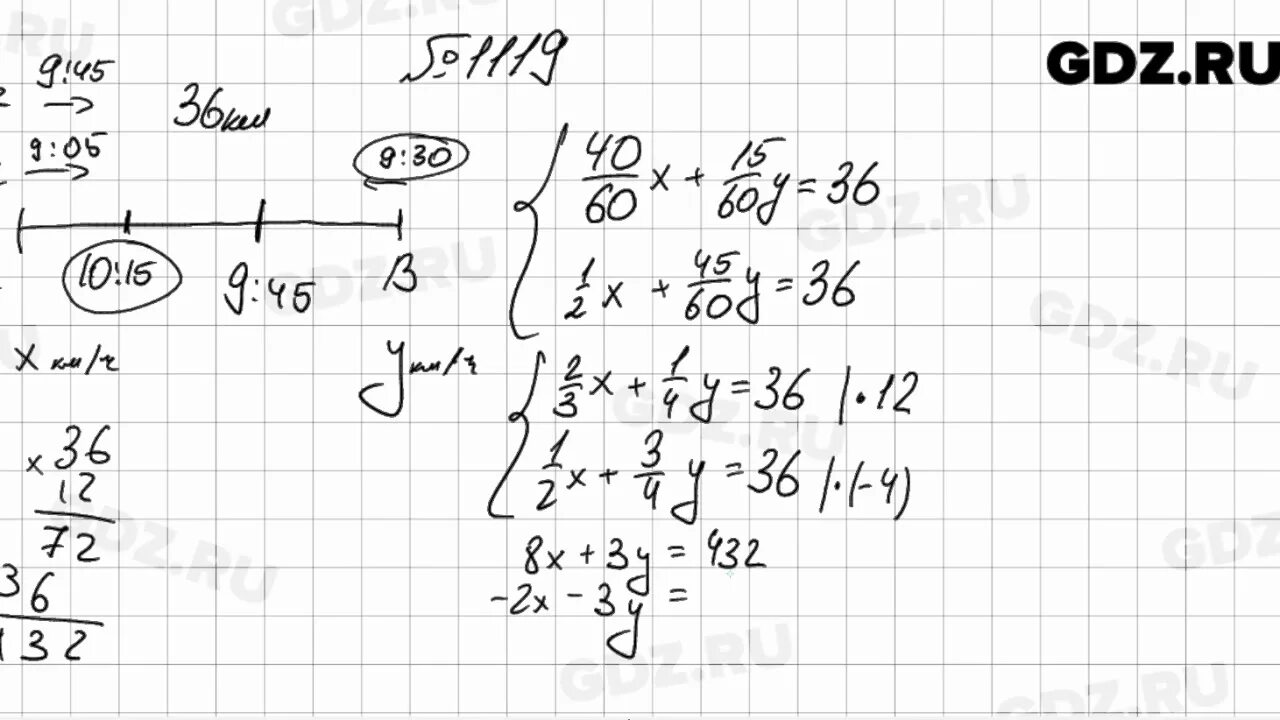 №1119
GDZ.RU
9:45
36 км
9:05
9:30
10:15
9:45
B
x км/ч
y км/ч
40/60 x + 15/60 y = 36
1/2 x + 45/60 y = 36
2/3 x + 1/4 y = 36 |·12
1/2 x + 3/4 y = 36 |·(-4)
8x + 3y = 432
-2x - 3y =
× 36
12
72
36
432